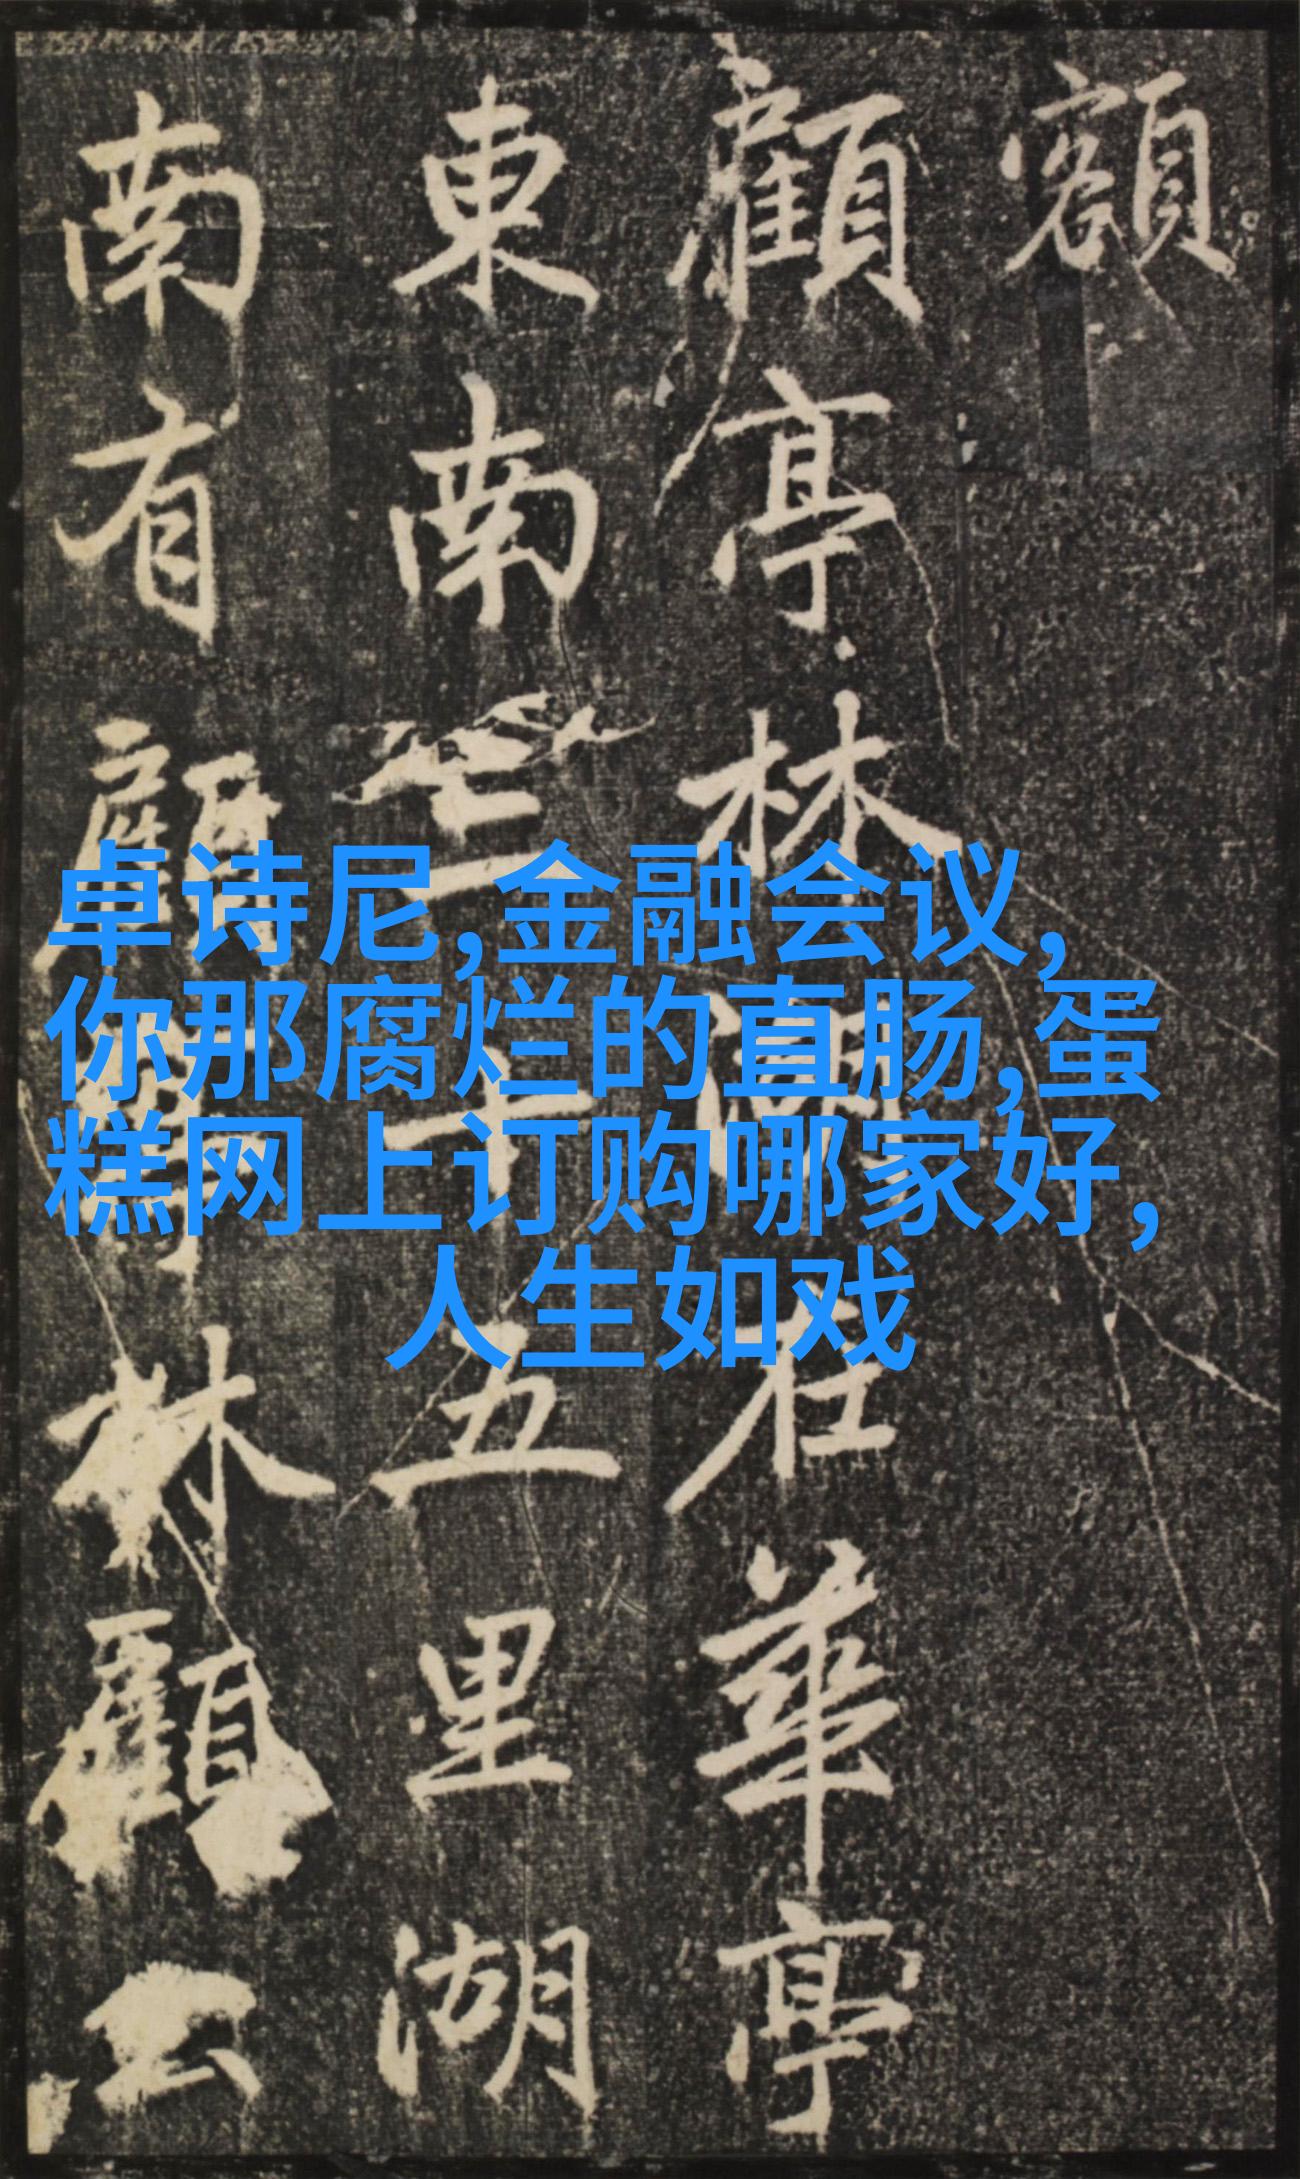 額
顧亭林湖在華亭
東南三十五里湖
南有顧野林顧公
卓诗尼,金融会议,
你那腐烂的直肠,蛋
糕网上订购哪家好,
人生如戏